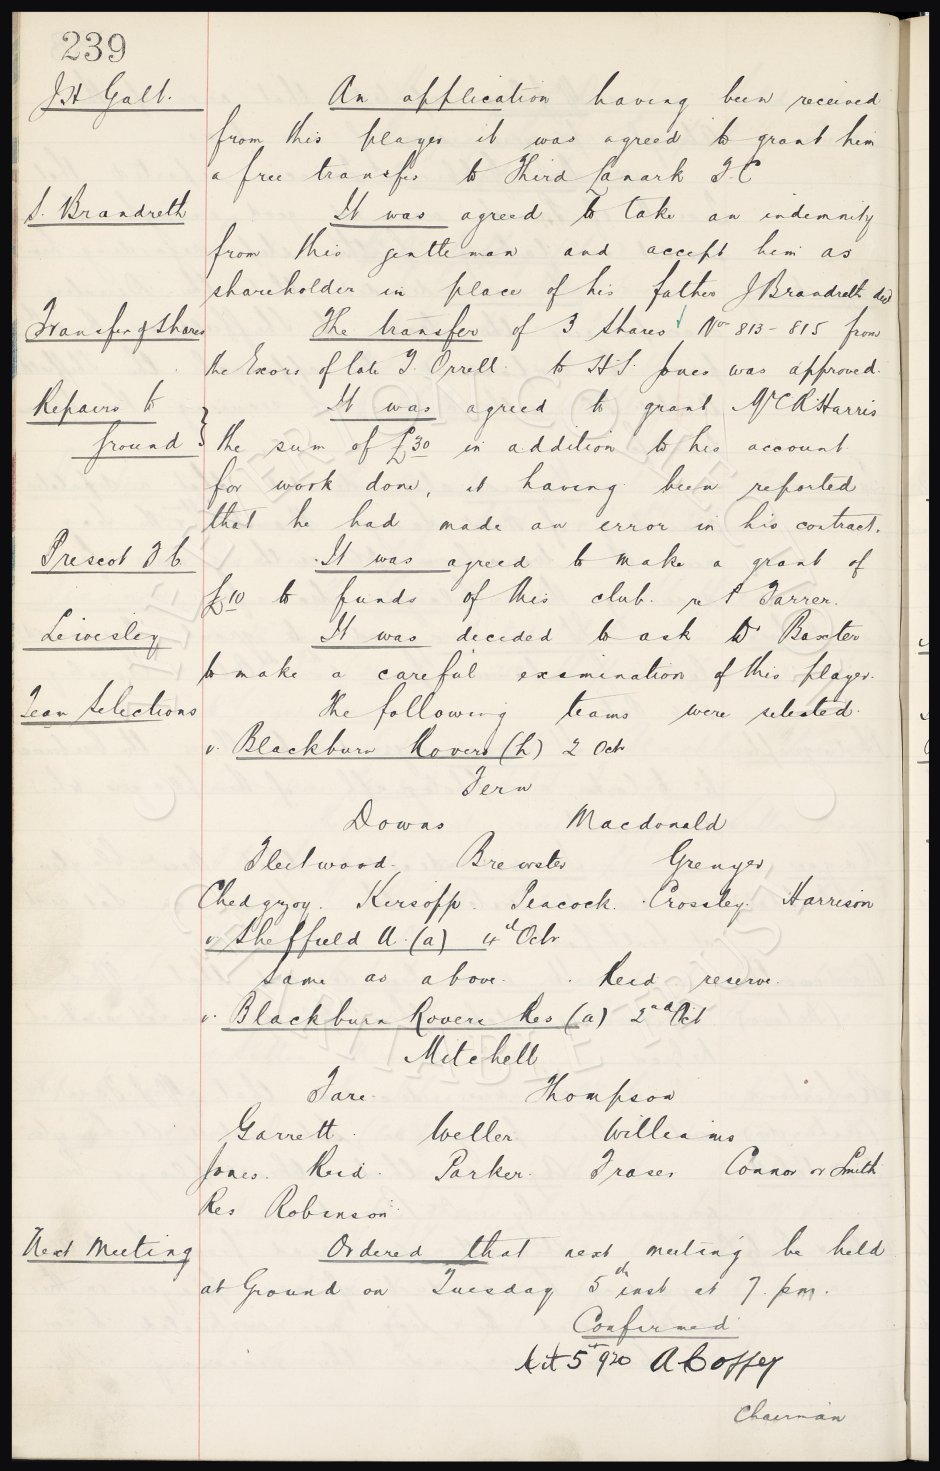 239
J H Galt. An application having been received
from this player it was agreed to grant him
a free transfer to Third Lanark F.C
S. Brandreth It was agreed to take an indemnity
from this gentleman and accept him as
shareholder in place of his father J Brandreth decd
Transfer of Shares The transfer of 3 shares Nos 813-815 from
the Exors of late T. Orrell. to H.S. Jones was approved.
Repairs to It was agreed to grant Mr C R Harris
Ground } the sum of £30 in addition to his account
for work done, it having been reported
that he had made an error in his contract.
Prescot F C. It was agreed to make a grant of
£10 to funds of this club. re S Farrer.
Leivesley It was decided to ask Dr Baxter
to make a careful examination of this player.
Team Selections The following teams were selected.
v. Blackburn Rovers (h) 2 Oct
Fern
Downs Macdonald
Fleetwood. Brewster Grenyer
Chedgzoy. Kirsopp. Peacock. Crossley. Harrison
v. Sheffield U. (a) 4th Oct
Same as above. Reid reserve.
v. Blackburn Rovers Res (a) 2nd Oct
Mitchell
Fare. Thompson
Garrett. Weller. Williams
Jones. Reid. Parker. Fraser Connor or Smith
Res Robinson
Next Meeting Ordered that next meeting be held
at Ground on Tuesday 5th inst at 7. pm.
Confirmed
Oct 5th 920 A Coffey
Chairman